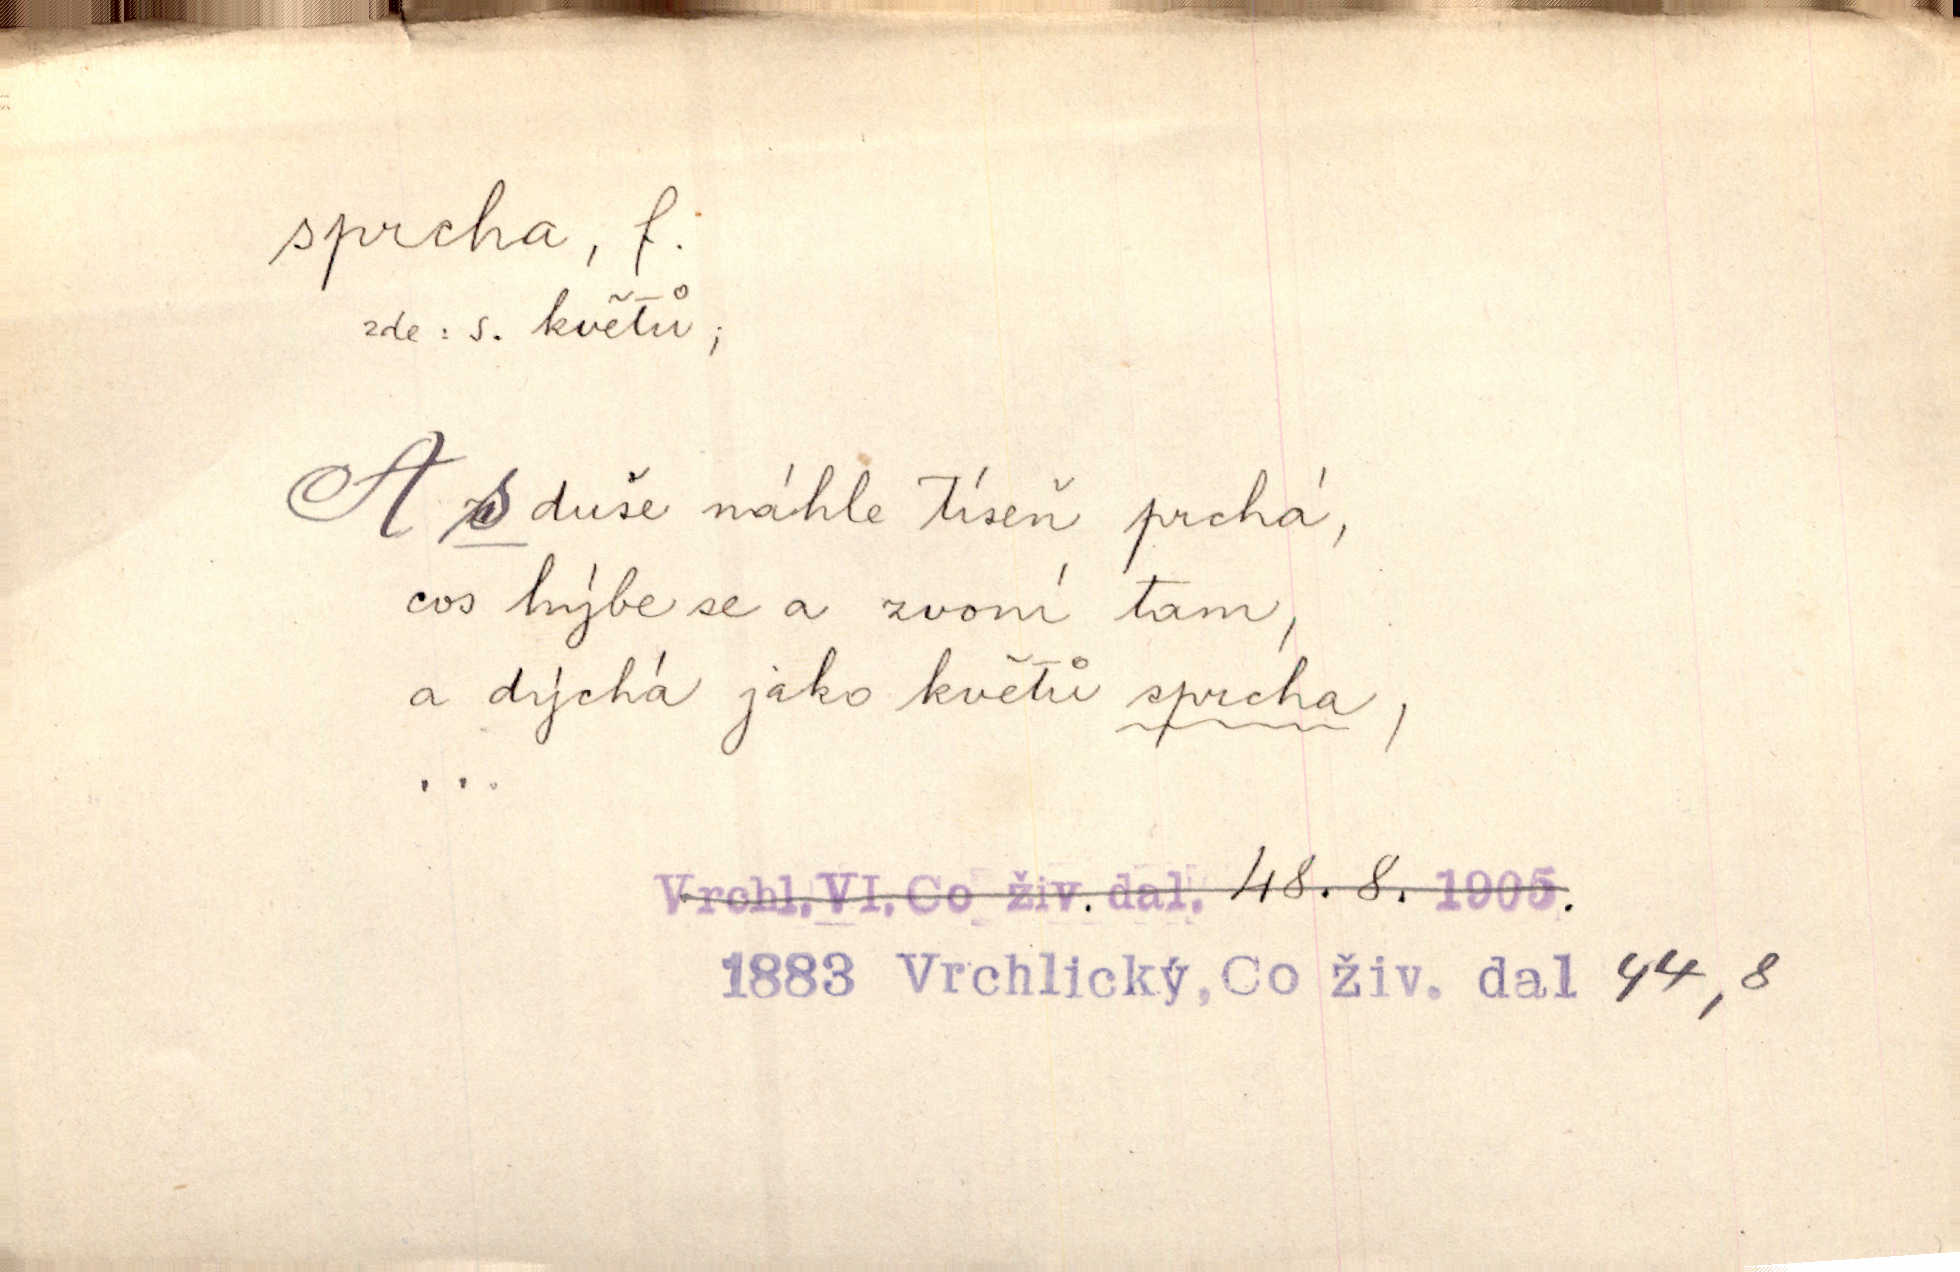 sprcha, f.
zde: s. květů;
A s duše náhle tíseň prchá,
cos hýbe se a zvoní tam,
a dýchá jako květů sprcha,
...
Vrchl. VI. Co živ. dal. 48. 8. 1905.
1883 Vrchlický, Co živ. dal 44, 8